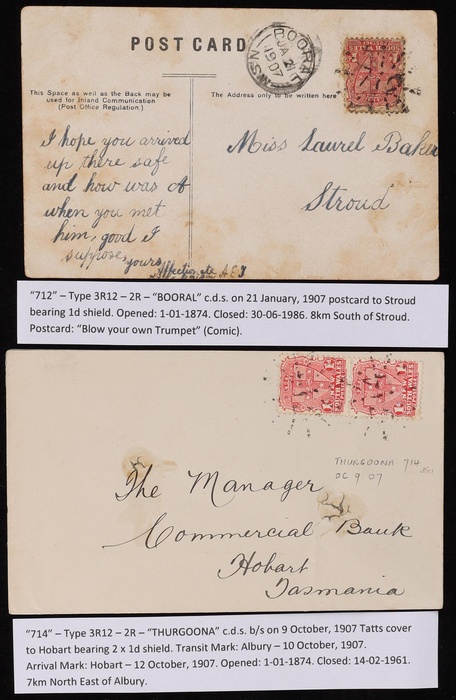 POST CARD
BOORAL
JA 21
1907
N.S.W
This Space as well as the Back may be
used for Inland Communication
(Post Office Regulation.)
The Address only to be written here
I hope you arrived
up there safe
and how was
when you met
him, good I
suppose, yours
Affectionate
Miss Laurel Baker
Stroud
"712" – Type 3R12 – 2R – "BOORAL" c.d.s. on 21 January, 1907 postcard to Stroud
bearing 1d shield. Opened: 1-01-1874. Closed: 30-06-1986. 8km South of Stroud.
Postcard: "Blow your own Trumpet" (Comic).
SOUTH WALES
SOUTH WALES
THURGOONA 714
OC 9 07
The Manager
Commercial Bank
Hobart
Tasmania
"714" – Type 3R12 – 2R – "THURGOONA" c.d.s. b/s on 9 October, 1907 Tatts cover
to Hobart bearing 2 x 1d shield. Transit Mark: Albury – 10 October, 1907.
Arrival Mark: Hobart – 12 October, 1907. Opened: 1-01-1874. Closed: 14-02-1961.
7km North East of Albury.